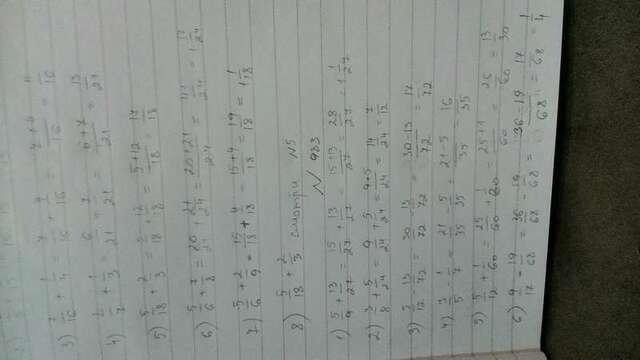 3) 7/16 + 1/4 = 7/16 + 4/16 = 7+4/16 = 11/16
4) 2/7 + 1/3 = 6/21 + 7/21 = 6+7/21 = 13/21
5) 5/18 + 2/3 = 5/18 + 12/18 = 5+12/18 = 17/18
6) 5/6 + 7/8 = 20/24 + 21/24 = 20+21/24 = 41/24 = 1 17/24
7) 5/6 + 2/9 = 15/18 + 4/18 = 15+4/18 = 19/18 = 1 1/18
8) 5/18 + 2/3 смотри №5
№ 933
1) 5/9 + 13/27 = 15/27 + 13/27 = 15+13/27 = 28/27 = 1 1/27
2) 3/8 + 5/24 = 9/24 + 5/24 = 9+5/24 = 14/24 = 7/12
3) 5/12 - 13/72 = 30/72 - 13/72 = 30-13/72 = 17/72
4) 3/5 - 1/7 = 21/35 - 5/35 = 21-5/35 = 16/35
5) 5/12 + 1/60 = 25/60 + 1/60 = 25+1/60 = 26/60 = 13/30
6) 9/17 - 19/68 = 36/68 - 19/68 = 36-19/68 = 17/68 = 1/4